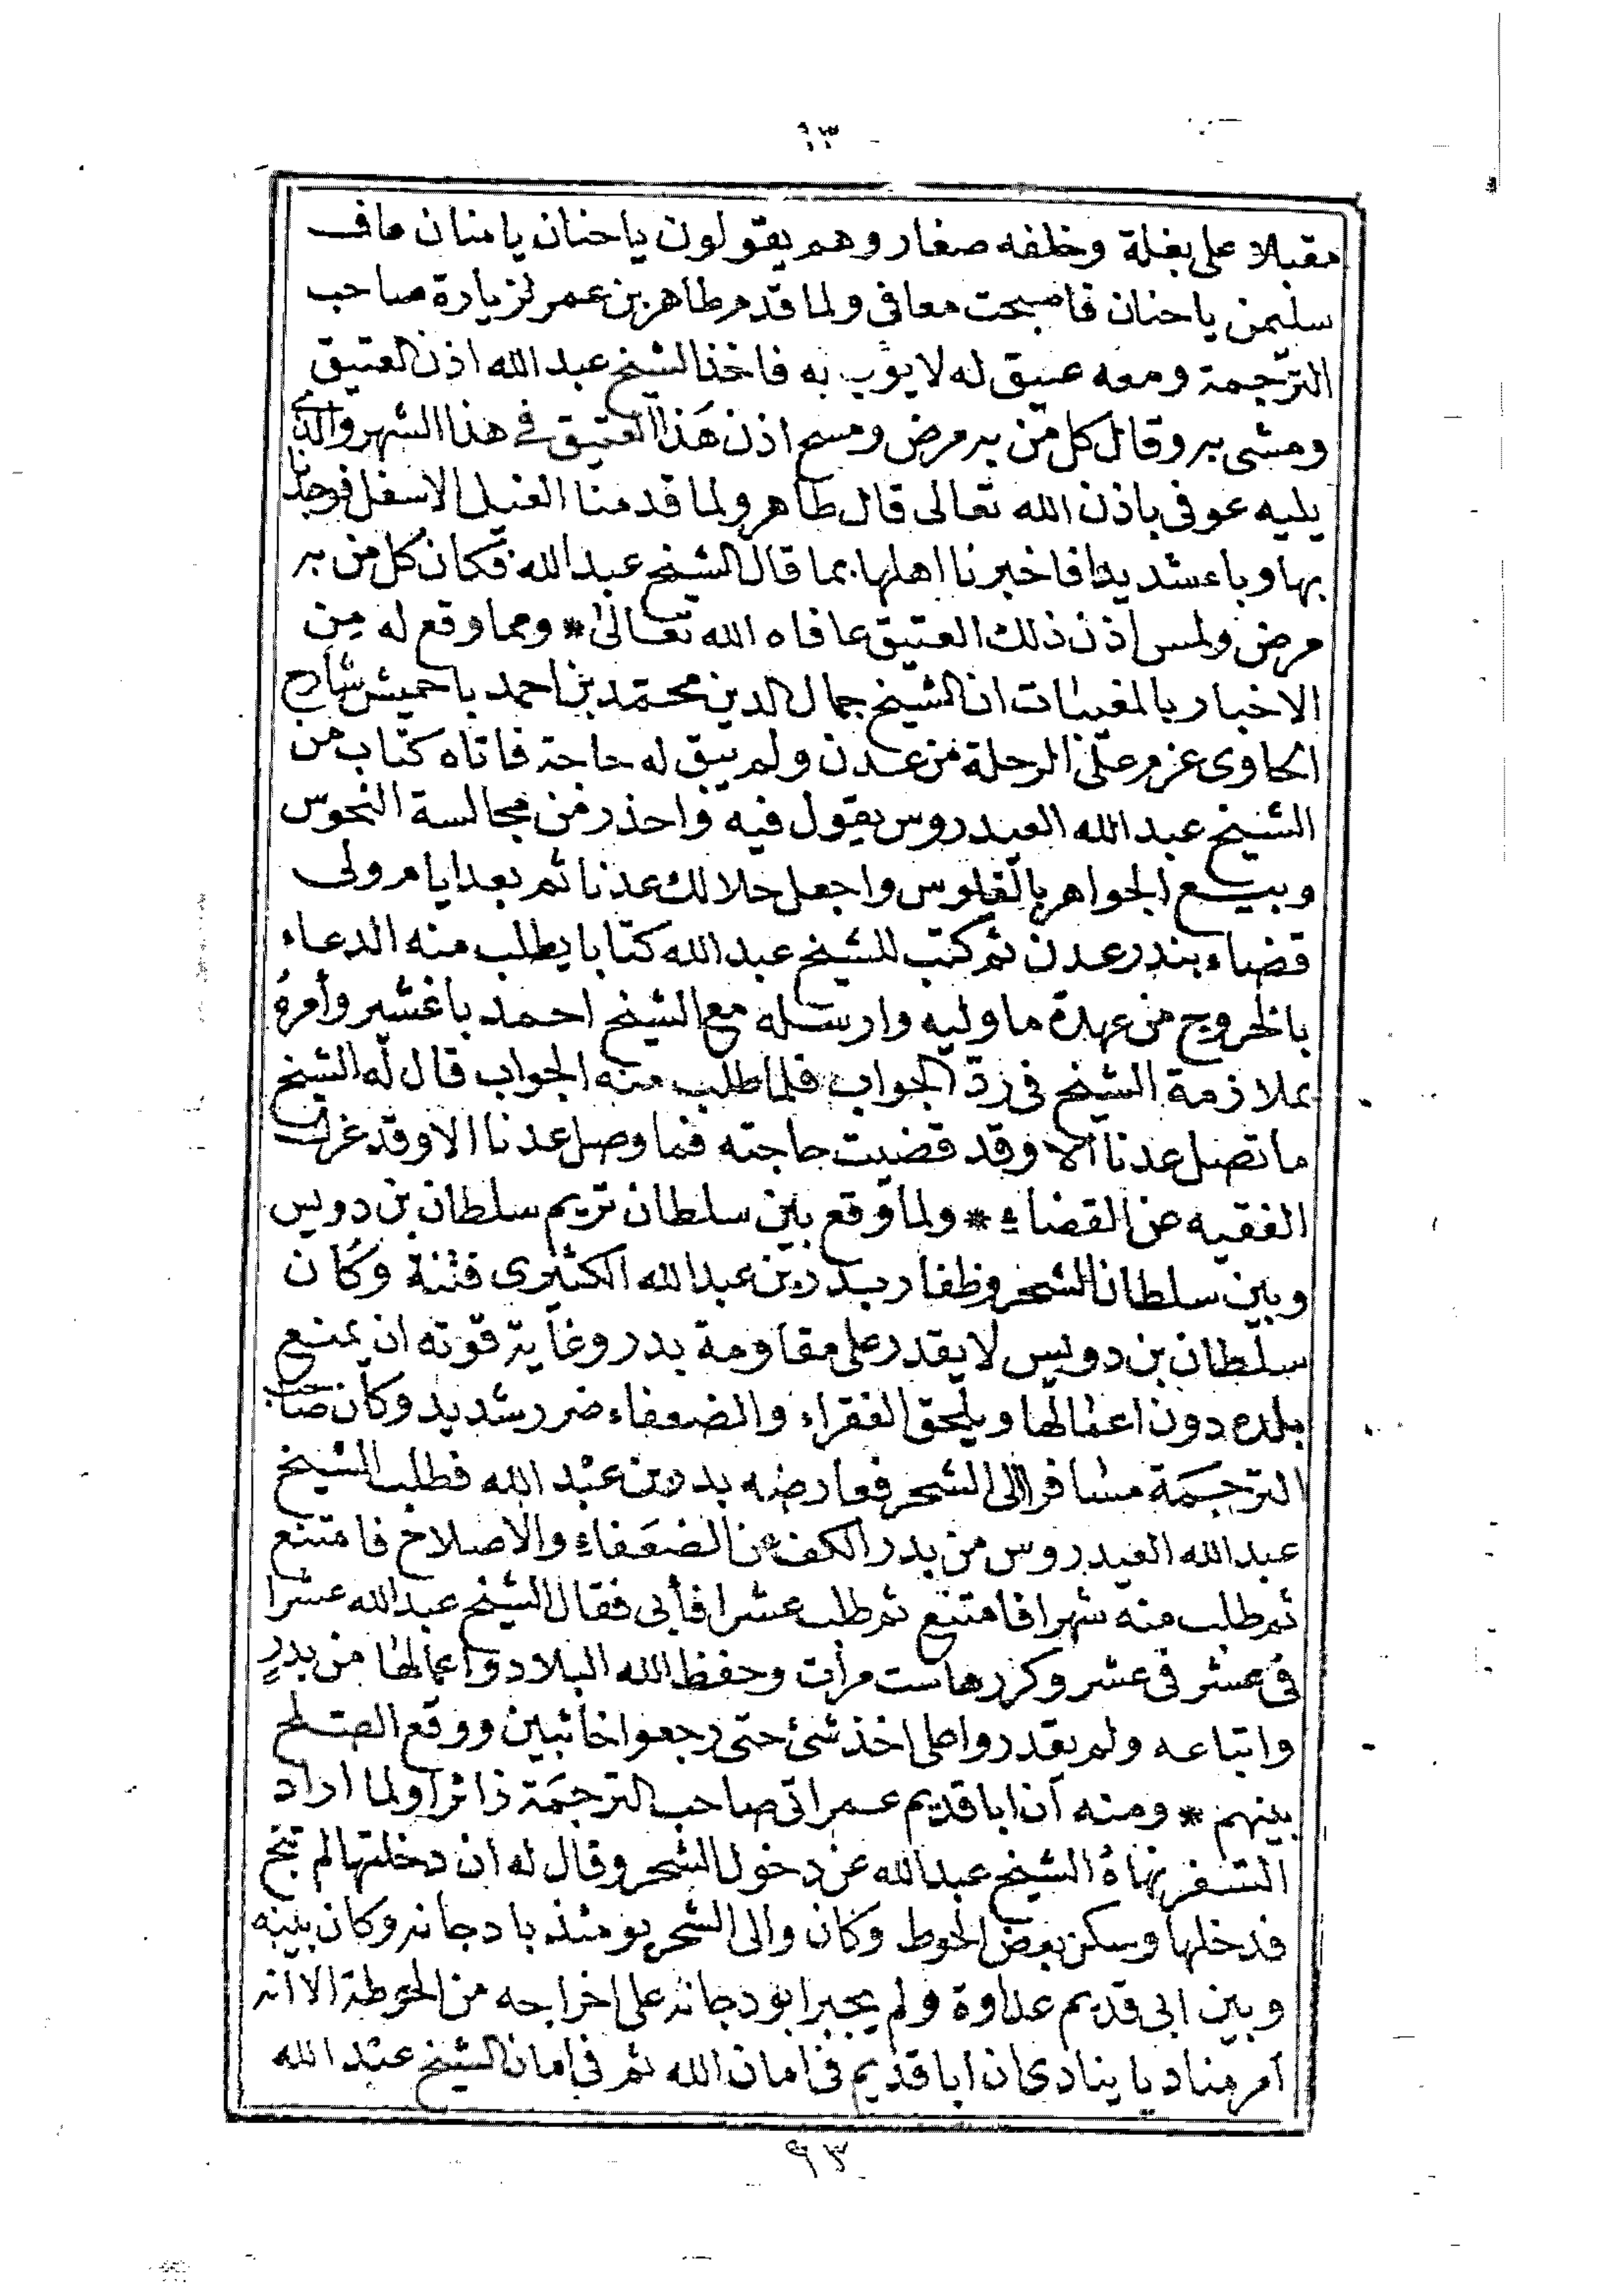 ٩٣
مقبلا على بغلة وخلفه صغار وهم يقولون يا حنان يا منان عاف
سليمن يا حنان فاصبحت معافى ولما قدم طاهر بن عمر لزيارة صاحب
الترجمة ومعه عتيق له لا يؤبه به فاخذ الشيخ عبد الله اذن العتيق
ومشى به وقال كل من به مرض ومسح اذن هذا العتيق في هذا الشهر والذي
يليه عوفى باذن الله تعالى قال طاهر ولما قدمنا الغيل الاسفل فوجدنا
بها وباء شديدا فاخبرنا اهلها بما قال الشيخ عبد الله فكان كل من به
مرض ولمس اذن ذلك العتيق عافاه الله تعالى * ومما وقع له من
الاخبار بالمغيبات ان الشيخ جمال الدين محمد بن احمد باحميش شارح
الحاوى عزم على الرحلة من عدن ولم يبق له حاجة فاتاه كتاب من
الشيخ عبد الله العيدروس يقول فيه واحذر من مجالسة النحوس
وبيع الجواهر بالفلوس واجعل حلالك عدنا ثم بعد ايام ولى
قضاء بندر عدن ثم كتب للشيخ عبد الله كتابا يطلب منه الدعاء
بالخروج من عهدة ما وليه وارسله مع الشيخ احمد باغشير وأمره
بملازمة الشيخ في ردّ الجواب فلما طلب منه الجواب قال له الشيخ
ما تصل عدنا الا وقد قضيت حاجته فما وصل عدنا الا وقد عزل
الفقيه عن القضاء * ولما وقع بين سلطان تريم سلطان بن دويس
وبين سلطان الشحر وظفار بدر بن عبد الله الكثيرى فتنة وكان
سلطان بن دويس لا يقدر على مقاومة بدر وغاية قوته ان يمنع
بلده دون اعمالها ويلحق الفقراء والضعفاء ضرر شديد وكان صاحب
الترجمة مسافرا الى الشحر فعارضه بدر بن عبد الله فطلب الشيخ
عبد الله العيدروس من بدر الكف عن الضعفاء والاصلاح فامتنع
ثم طلب منه شهرا فامتنع ثم طلب عشرا فأبى فقال الشيخ عبد الله عشرا
في عشر في عشر وكررها ست مرات وحفظ الله البلاد واعمالها من بدر
واتباعه ولم يقدروا على اخذ شئ حتى رجعوا خائبين ووقع الصلح
بينهم * ومنه أن ابا قديم عمر اتى صاحب الترجمة زائرا ولما اراد
السفر نهاه الشيخ عبد الله عن دخول الشحر وقال له ان دخلتها لم تنج
فدخلها وسكن بعض الحوط وكان والى الشحر يومئذ بادجانه وكان بينه
وبين ابى قديم عداوة ولم يجبر ابو دجانه على اخراجه من الحوطة الا انه
امر مناديا ينادى ان ابا قديم في امان الله ثم في امان الشيخ عبد الله
٩٣